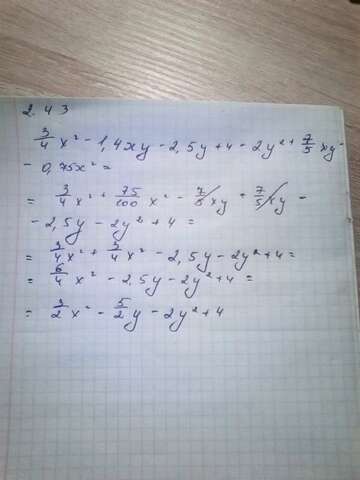 2.43
3/4 x² - 1,4xy - 2,5y + 4 - 2y² + 7/5 xy -
- 0,75x² =
= 3/4 x² + 75/100 x² - 7/5 xy + 7/5 xy -
- 2,5y - 2y² + 4 =
= 3/4 x² + 3/4 x² - 2,5y - 2y² + 4 =
= 6/4 x² - 2,5y - 2y² + 4 =
= 3/2 x² - 5/2 y - 2y² + 4